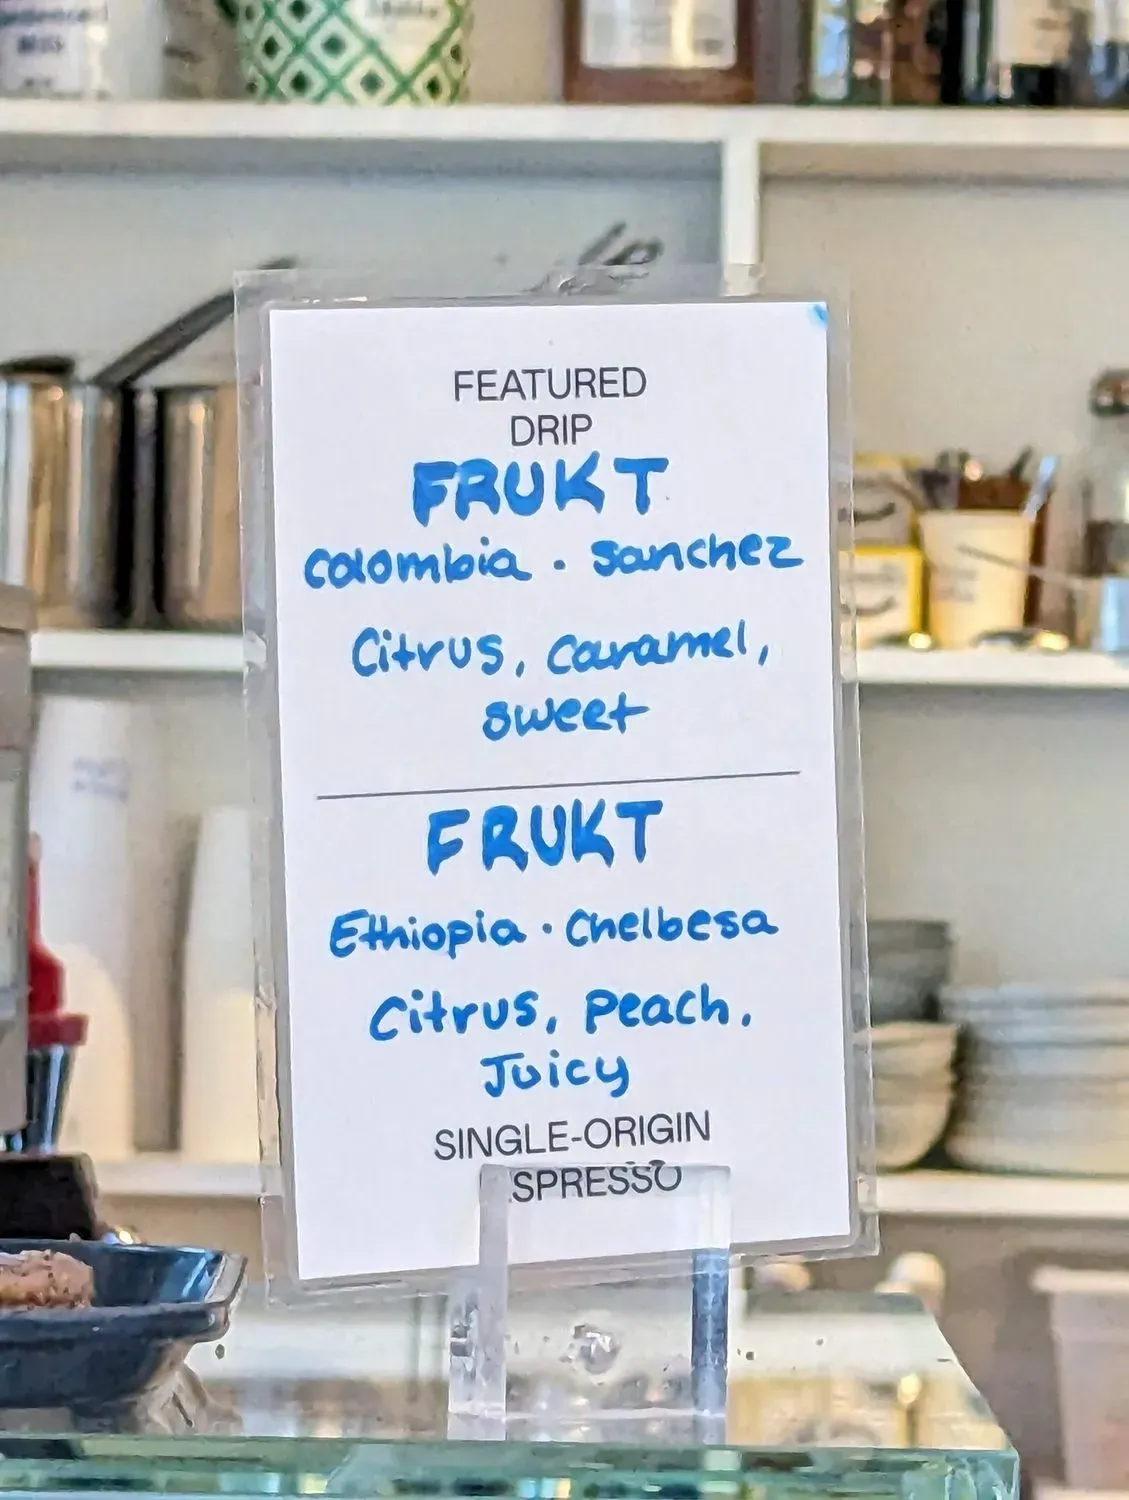 FEATURED
DRIP
FRUKT
Colombia · Sanchez
Citrus, Caramel,
sweet
FRUKT
Ethiopia · Chelbesa
Citrus, Peach,
Juicy
SINGLE-ORIGIN
ESPRESSO